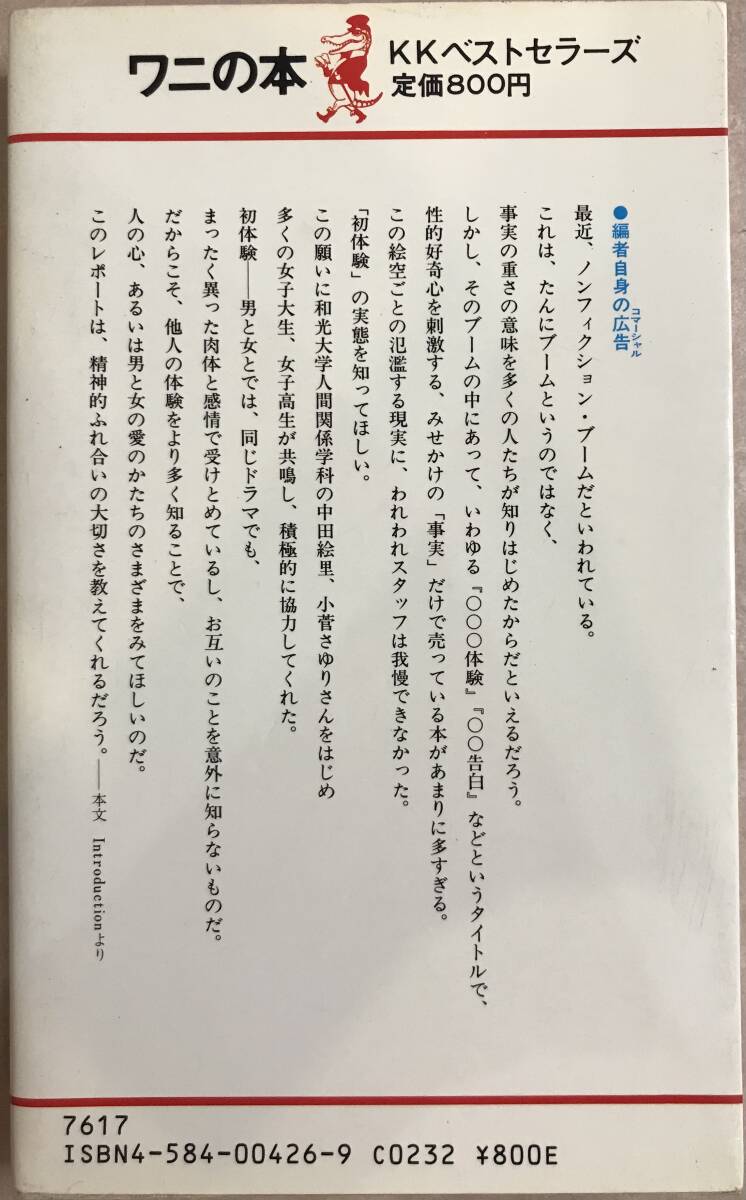 ワニの本
KKベストセラーズ
定価800円
●編者自身の広告
コマーシャル
最近、ノンフィクション・ブームだといわれている。
これは、たんにブームというのではなく、
事実の重さの意味を多くの人たちが知りはじめたからだといえるだろう。
しかし、そのブームの中にあって、いわゆる『〇〇〇体験』『〇〇告白』などというタイトルで、
性的好奇心を刺激する、みせかけの「事実」だけで売っている本があまりに多すぎる。
この絵空ごとの氾濫する現実に、われわれスタッフは我慢できなかった。
「初体験」の実態を知ってほしい。
この願いに和光大学人間関係学科の中田絵里、小菅さゆりさんをはじめ
多くの女子大生、女子高生が共鳴し、積極的に協力してくれた。
初体験――男と女とでは、同じドラマでも、
まったく異った肉体と感情で受けとめているし、お互いのことを意外に知らないものだ。
だからこそ、他人の体験をより多く知ることで、
人の心、あるいは男と女の愛のかたちのさまざまをみてほしいのだ。
このレポートは、精神的ふれ合いの大切さを教えてくれるだろう。――本文 Introductionより
7617
ISBN4-584-00426-9 C0232 ¥800E